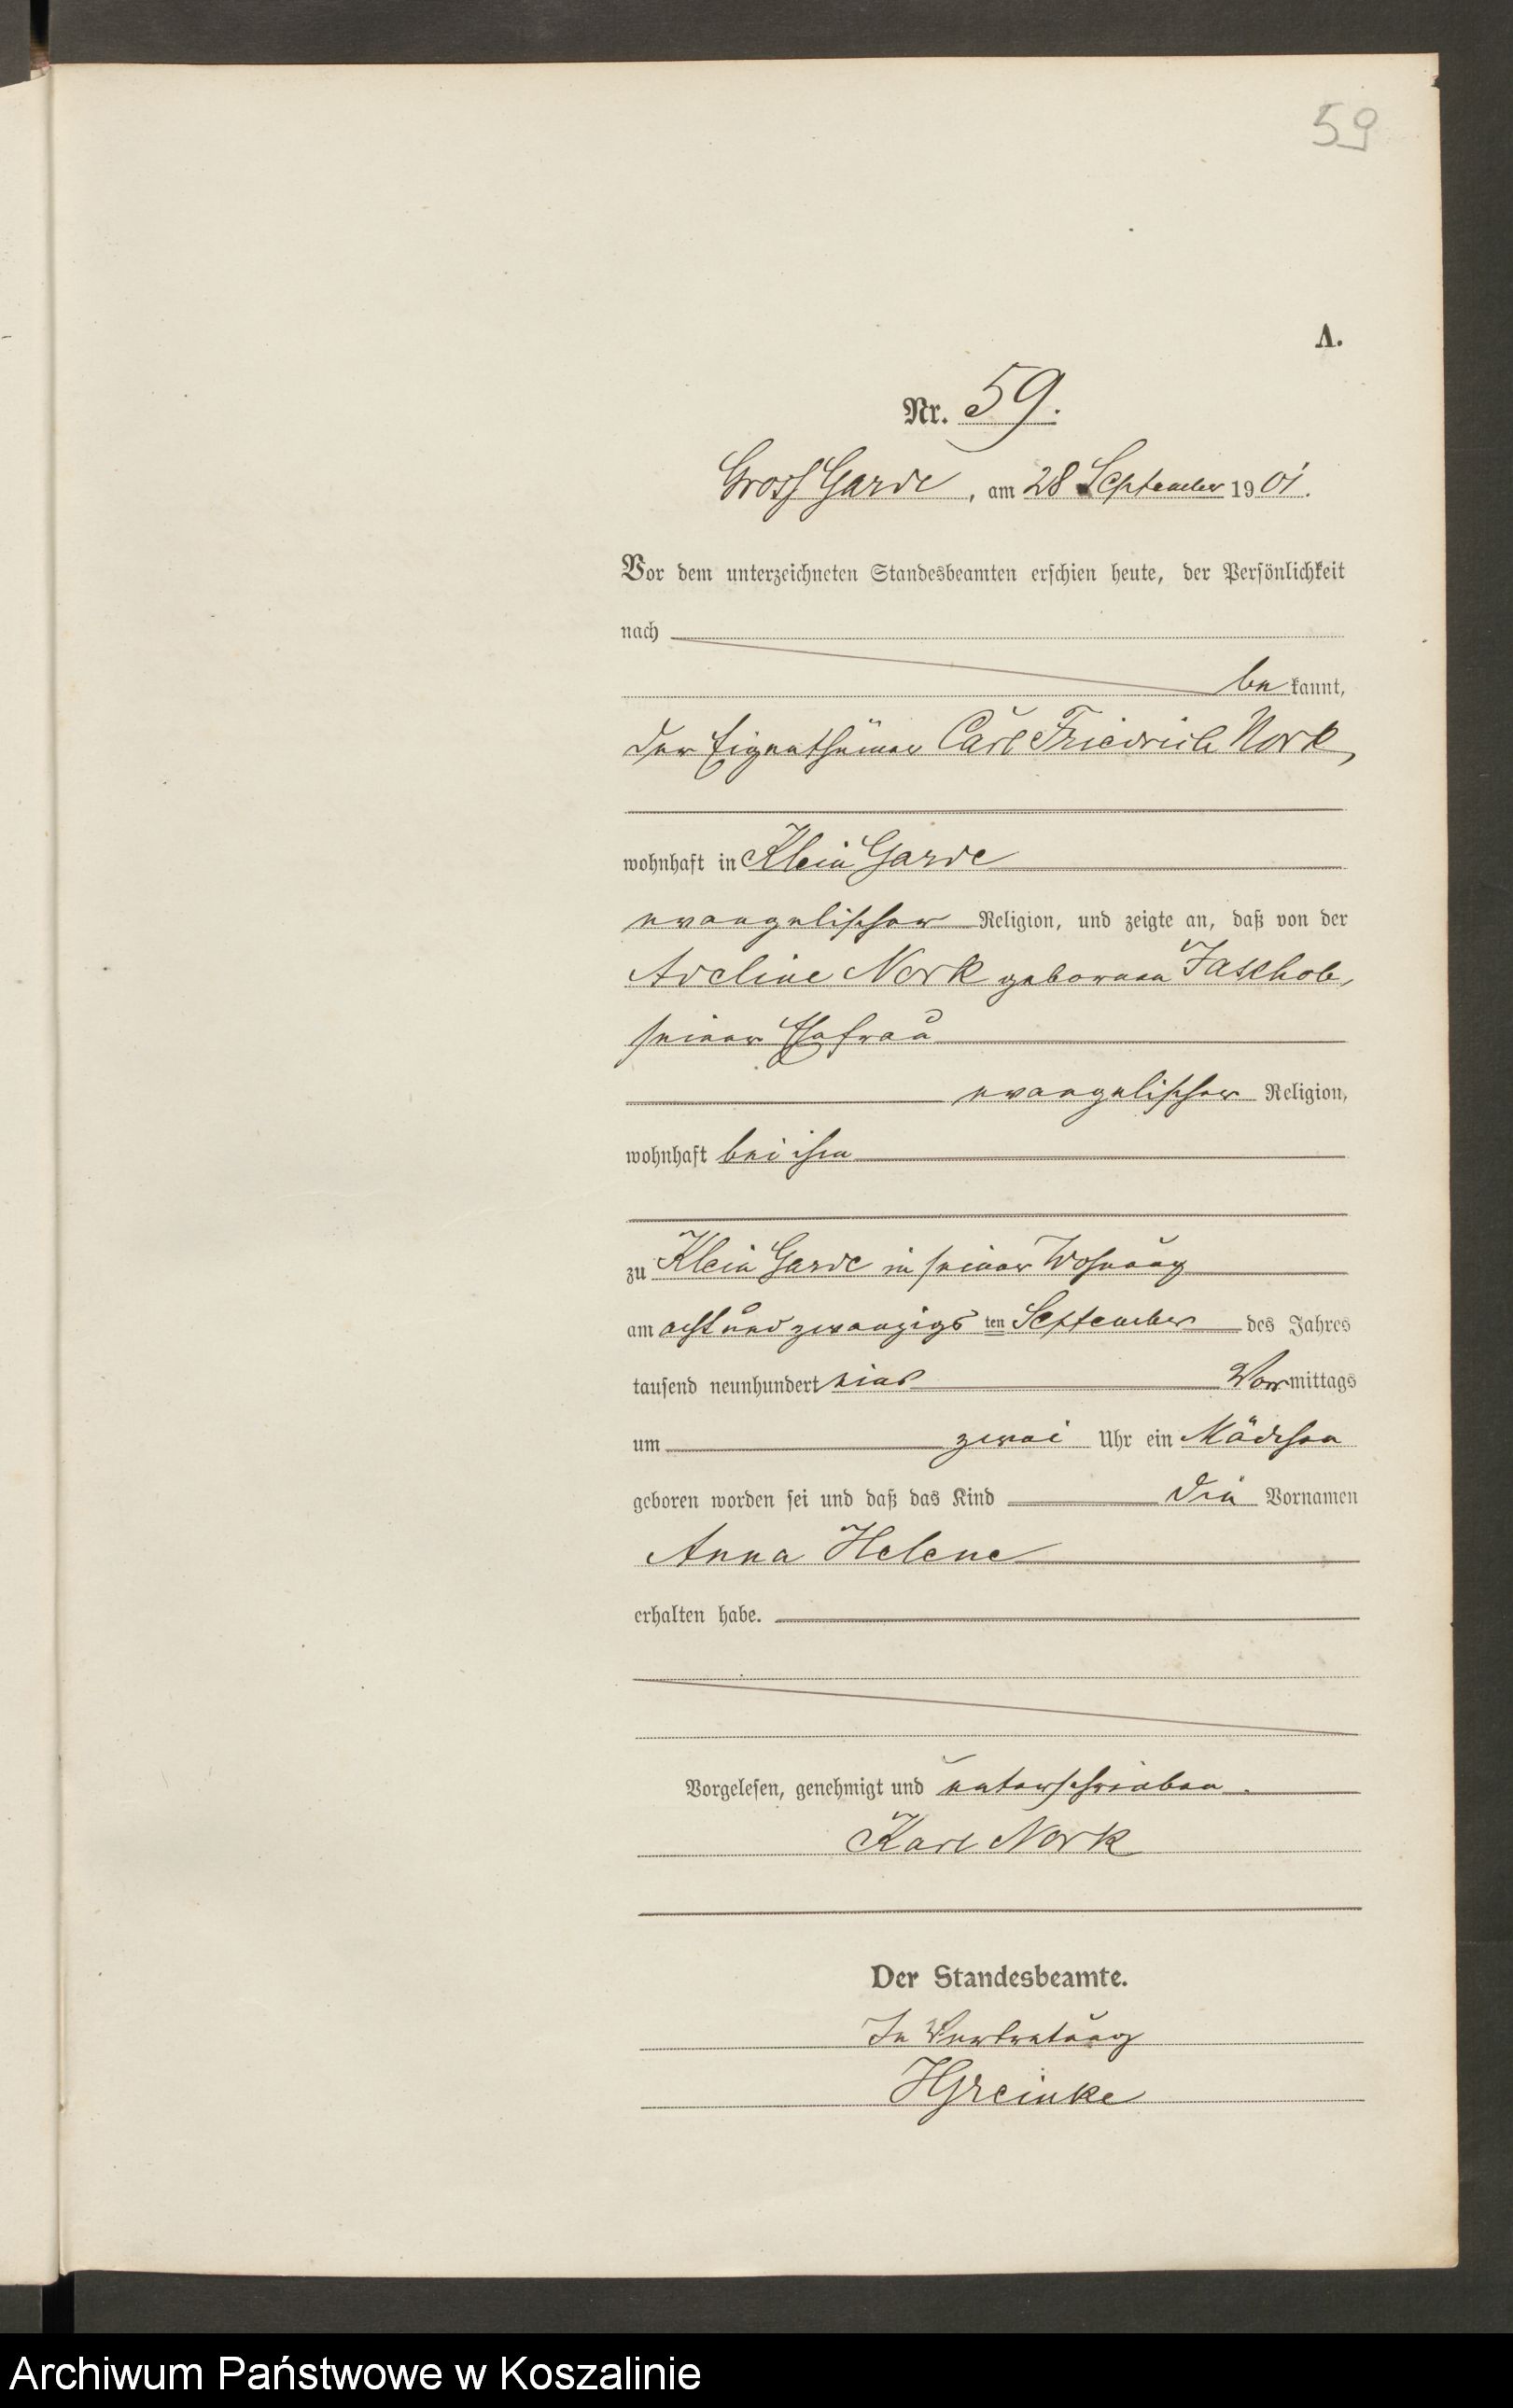 59
A.
Nr. 59.
Gross Garde, am 28 September 1901.
Vor dem unterzeichneten Standesbeamten erschien heute, der Persönlichkeit
nach
be kannt,
der Eigenthümer Carl Friedrich Nork,
wohnhaft in Klein Garde
evangelischer Religion, und zeigte an, daß von der
Adeline Nork geborenen Jaschob,
seiner Ehefrau
evangelischer Religion,
wohnhaft bei ihm
zu Klein Garde in seiner Wohnung
am acht und zwanzigs ten September des Jahres
tausend neunhundert eins Vormittags
um zwei Uhr ein Mädchen
geboren worden sei und daß das Kind die Vornamen
Anna Helene
erhalten habe.
Vorgelesen, genehmigt und unterschrieben.
Karl Nork
Der Standesbeamte.
In Vertretung
HGreinke
Archiwum Państwowe w Koszalinie